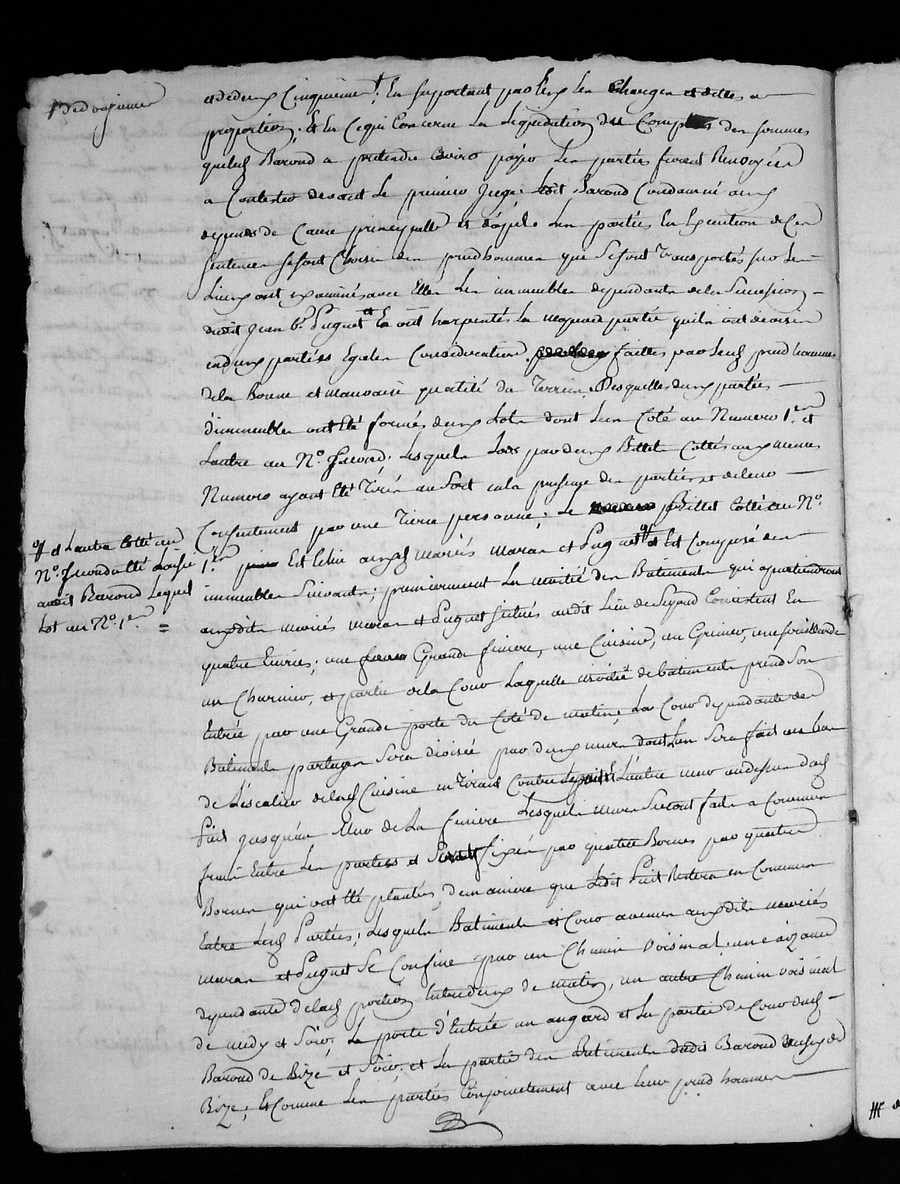 et de deux Cinquieme t. En suportant par Eux les Charges et dettes a
proportion. Et En Ce qui Concerne la Liquidation du Comptes des sommes
que led Baroud a pretendu avoir payés les parties furent Renvoyées
a Contester devant Le premier Juge; ledit Baroud Condamné aux
depends de Cause principalle et d'apel. les parties En Execution de Ces
sentences se sont Choisi des prudhommes que se sont transportés sur les
Lieux ont examinés avec Elles les immeubles dependants de la Succession
dudit Jean Bte. Puguet Et ont harpentés la majeure partie qu'ils ont divisés
en deux parties Egales Consideration faittes par led prud hommes
de la Bonne et mauvaise qualité du Terrein. Desquelles deux parties
d'immeubles ont été formés deux Lots dont l'un Coté au Numero 1er. et
L'autre au No. second. Lesquels Lots par deux Billets Cottés aux memes
Numeros ayant été Tirés au Sort en la presence des parties et de leur
Consentement par une Tierce personne; Le Billet Cotté au No.
1er. Est Echu auxd mariés maran et Puguet Est Composé des
immeubles Suivants; premierement La moitié des Batiments qui apartiendront
auxdits mariés maran et Puguet situés audit Lieu de Consistent En
quatre Ecuries; une Grande feniere, une Cuisine, un Grenier,
un Charnier, et partie de la Cour Laquelle moitié de batiments prend Son
Entrée par une Grande porte du Coté de matin; La Cour dependante des
Batiments partagés Sera divisée par deux murs dont l'un Sera fait au bas
de L'escalier de lad Cuisine en tirant Contre le puit L'autre mur au dessus dud
Puit jusqu'au Mur de La feniere Lesquels murs Seront faits a Communs
frais Entre les parties et fixés par quatre Bornes par quatre
Bornes qui ont été plantées, de maniere que Ledit Puit Restera en Commun
Entre lesd Parties; Lesquels Batiments et Cour avenus auxdits mariés
maran et Puguet Se Confine par un Chemin voisinal une aizance
dependante de lad portion Entre deux de matin, un autre Chemin voisinal
de midy et Soir. La porte d'Entrée un angard et La partie de Cour dud
Baroud de Bize et Soir, et La partie des Batiments dudit Baroud aussy de
Bize; Et Comme Les parties Conjointement avec Leur prud hommes
o// et Lautre Cotté au
No. second a Eté Laissé
audit Baroud Lequel
Lot au No. 1er. =